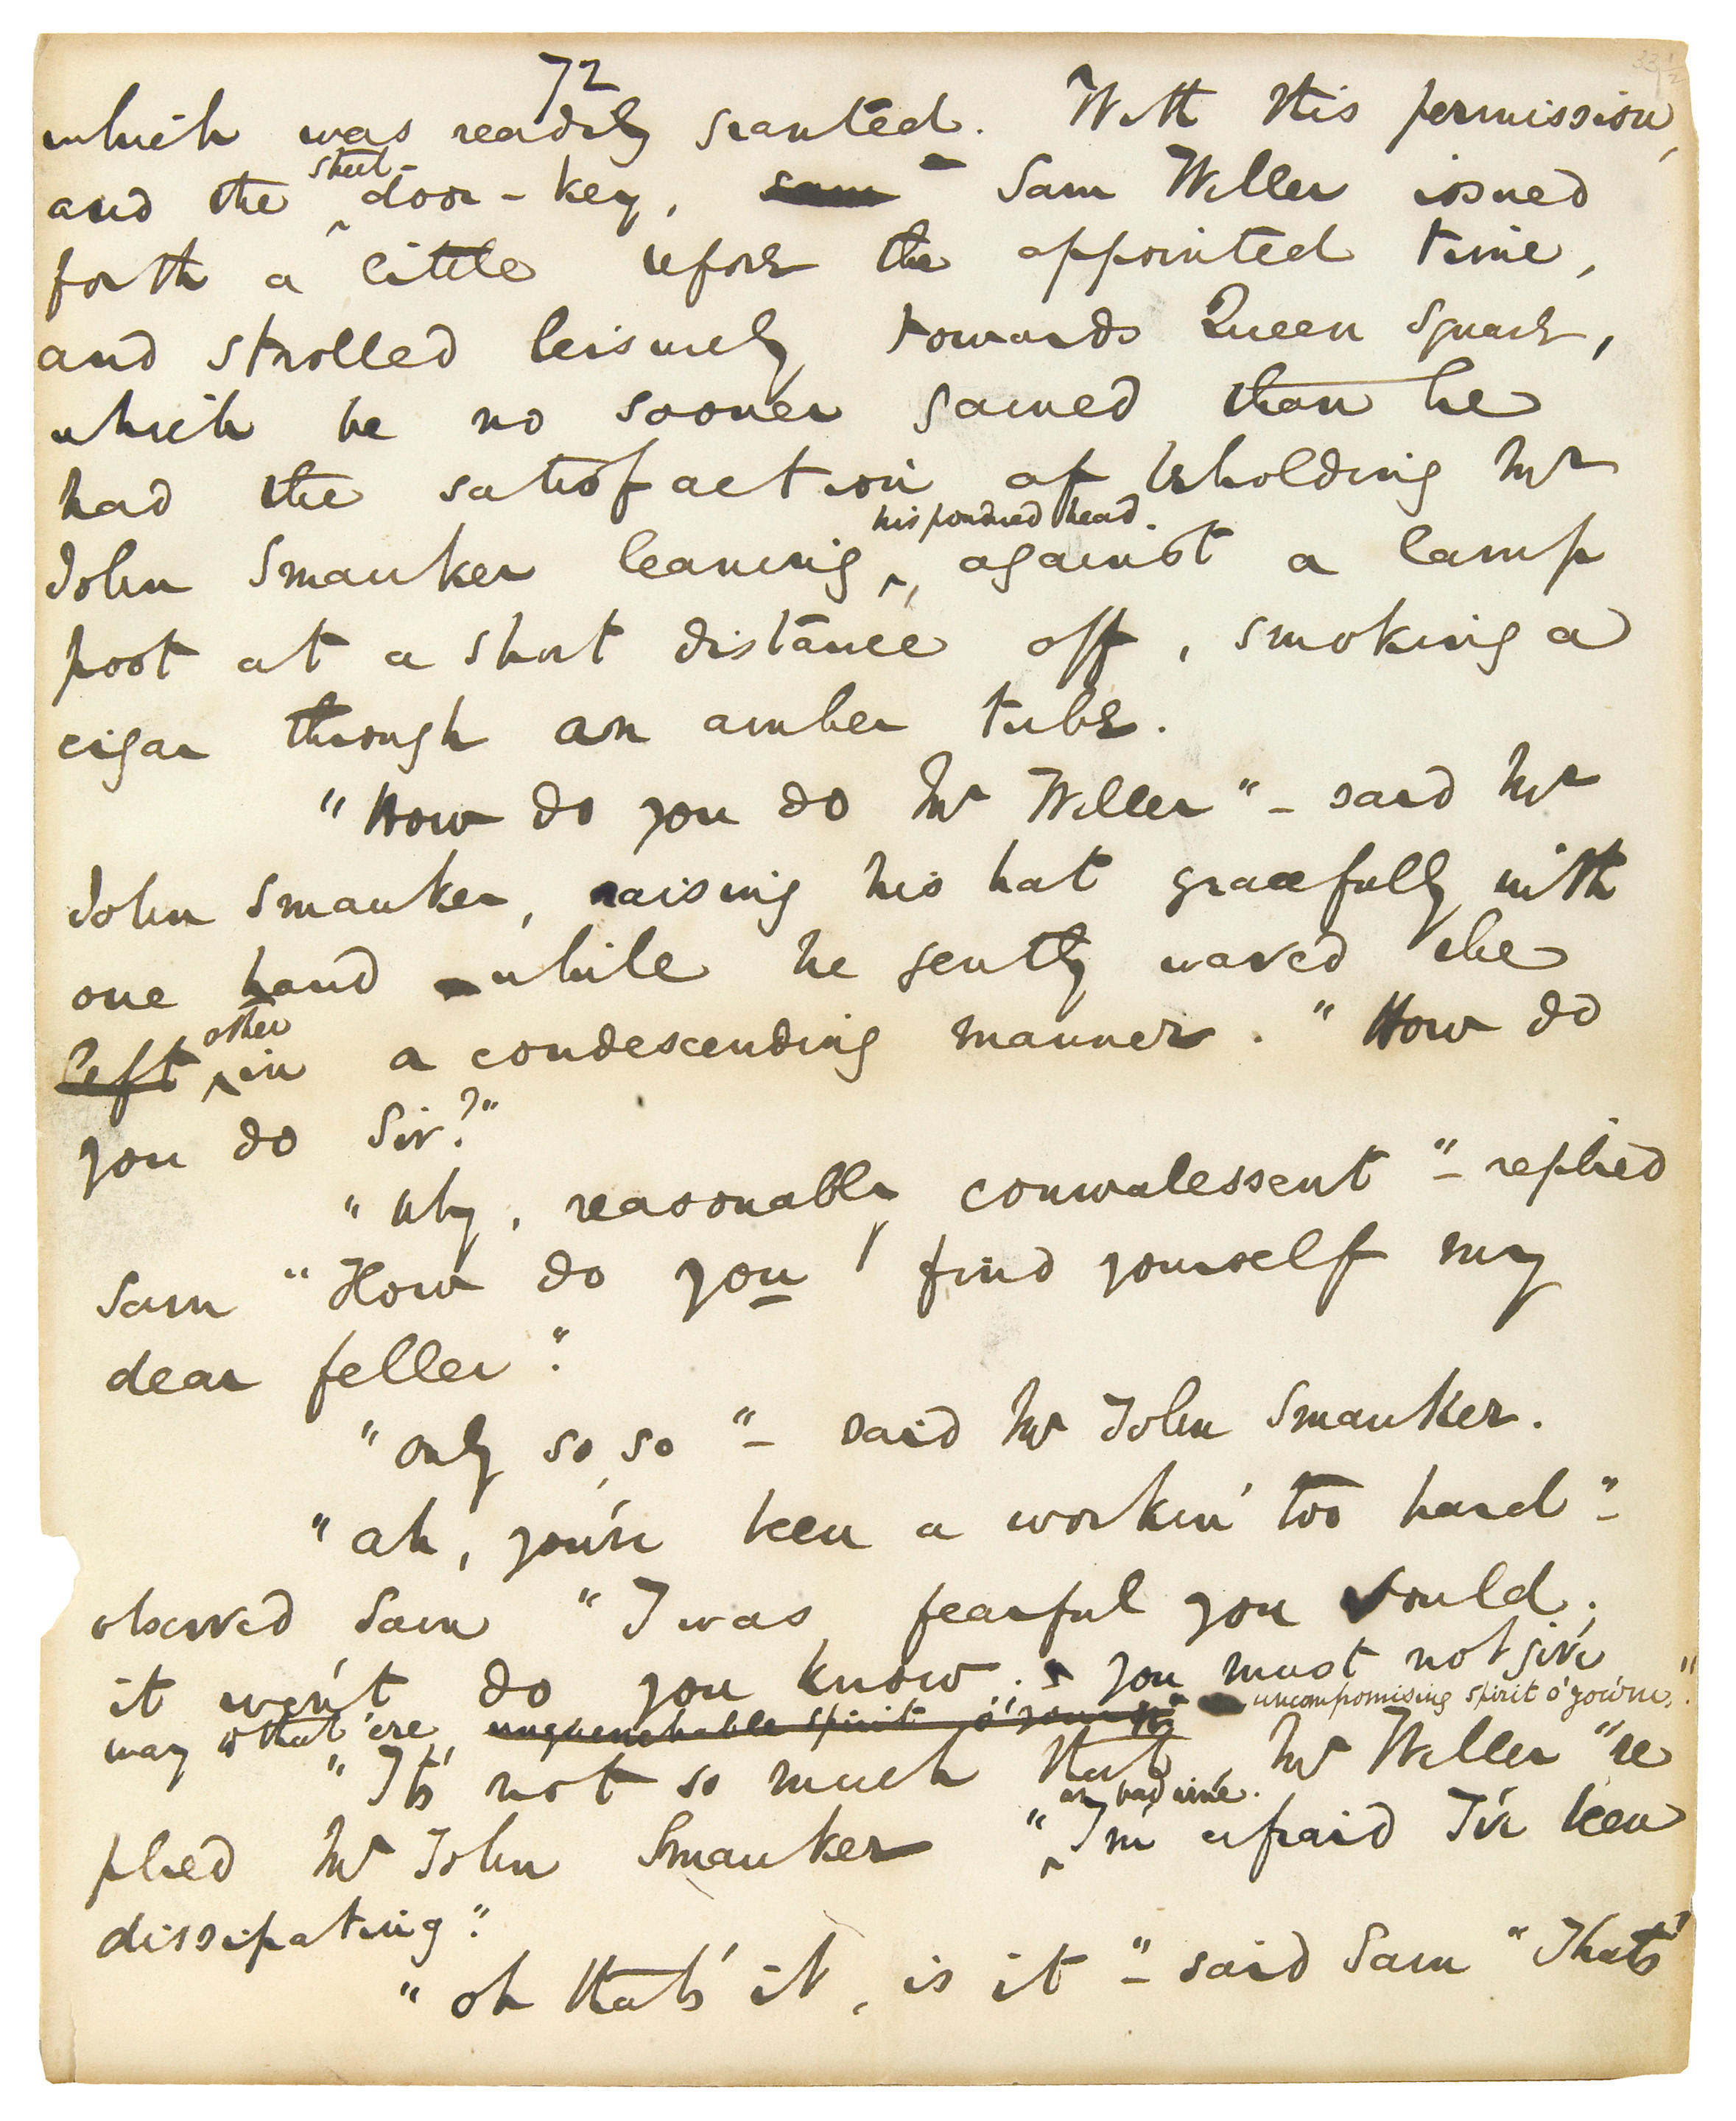 72
33 1/2
which was readily granted. With this permission,
and the street-door-key, sam Sam Weller issued
forth a little before the appointed time,
and strolled leisurely towards Queen Square,
which he no sooner gained than he
had the satisfaction of beholding Mr
John Smauker leaning his powdered head against a lamp
post at a short distance off, smoking a
cigar through an amber tube.
"How do you do Mr Weller" - said Mr
John Smauker, raising his hat gracefully with
one hand while he gently waved the
left other in a condescending manner. "How do
you do Sir?"
"Why, reasonably conwalessent" - replied
Sam "How do you find yourself my
dear feller".
"only so, so" - said Mr John Smauker.
"ah, you've been a workin' too hard" -
observed Sam "I was fearful you would;
it won't do you know. you must not give
way to that 'ere unquenchable spirit o' your'n uncompromising spirit o' your'n."
"It's not so much that, Mr Weller" "re
plied Mr John Smauker "as bad wine. I'm afraid I've been
dissipating".
"oh that's it, is it" - said Sam "That's